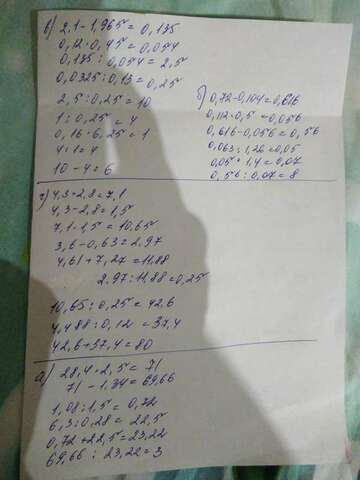 в) 2,1-1,965=0,135
0,12·0,45=0,054
0,135:0,054=2,5
0,0325:0,13=0,25
2,5:0,25=10
1:0,25=4
0,16·6,25=1
4:1=4
10-4=6
б) 0,72-0,104=0,616
0,112·0,5=0,056
0,616-0,056=0,56
0,063:1,26=0,05
0,05·1,4=0,07
0,56:0,07=8
г) 4,3+2,8=7,1
4,3-2,8=1,5
7,1·1,5=10,65
3,6-0,63=2,97
4,61+7,27=11,88
2,97:11,88=0,25
10,65:0,25=42,6
4,488:0,12=37,4
42,6+37,4=80
а) 28,4·2,5=71
71-1,34=69,66
1,08:1,5=0,72
6,3:0,28=22,5
0,72+22,5=23,22
69,66:23,22=3